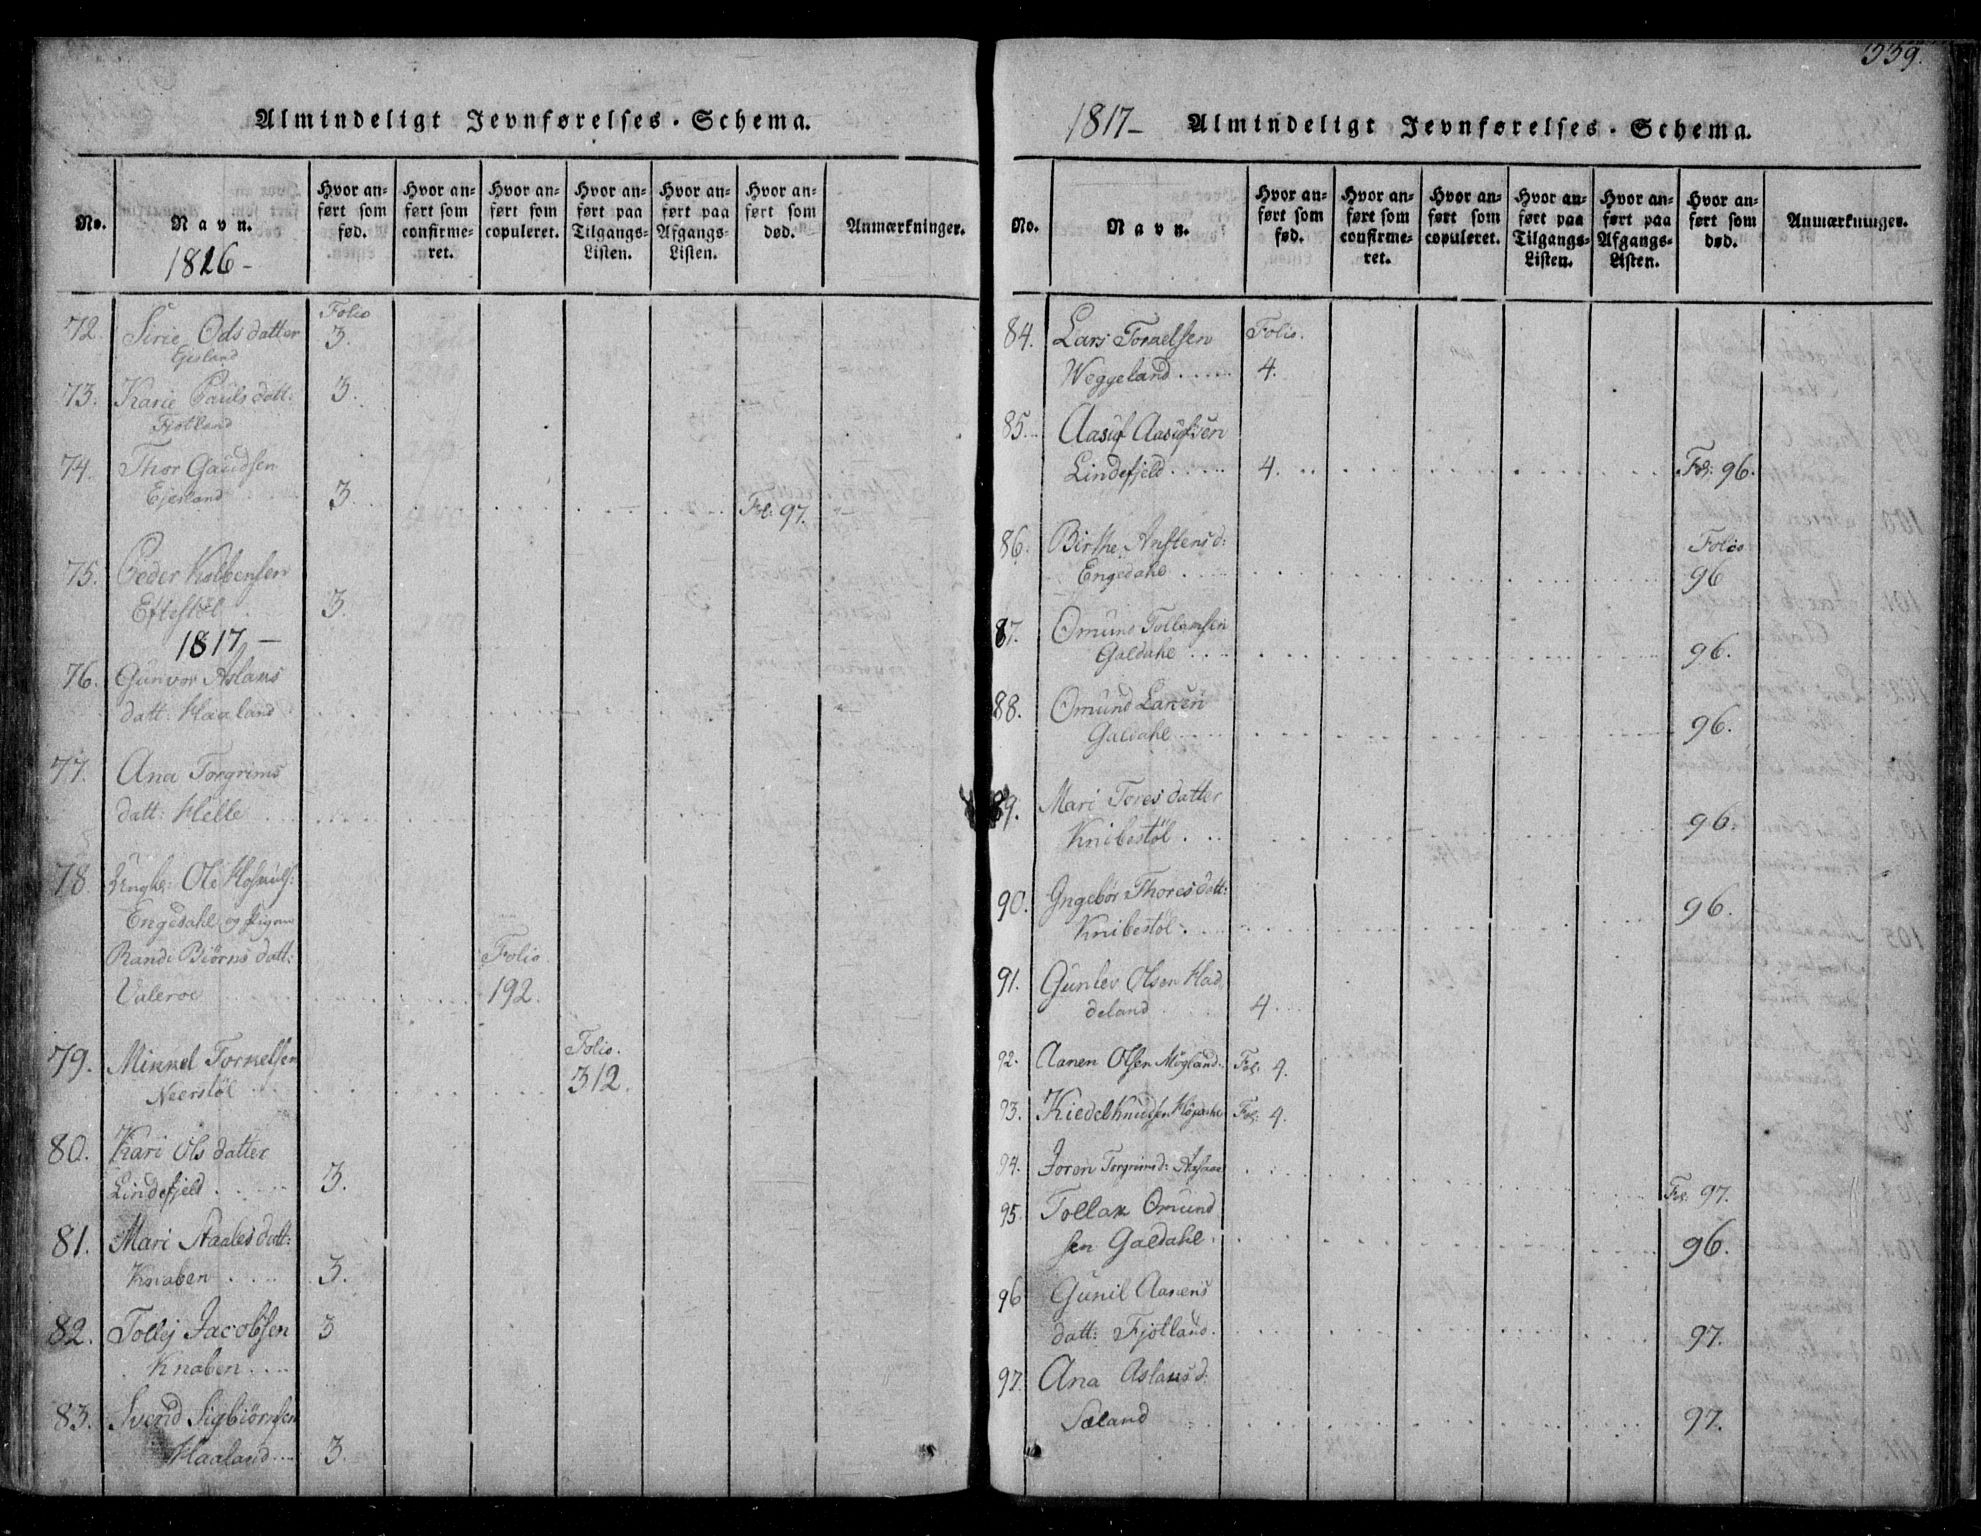 Almindeligt Jevnførelses-Schema.
No.
Navn.
1826-
Hvor anført som fød.
Hvor anført som confirmeret.
Hvor anført som copuleret.
Hvor anført paa Tilgangs-Listen.
Hvor anført paa Afgangs-Listen.
Hvor anført som død.
Anmærkninger.
Folio
72. Sirie Ods datter 3.
Ejesland
73. Karie Pauls datt: 3.
Fjotland
74. Thor Gaudsen
Ejesland 3. Fol: 97.
75. Peder Kolbensen
Eftestøl 3.
1817-
76. Gunvor Aslaks
datt: Haaland
77. Ana Torgrims
datt: Helle
78. Ungk: Ole
Engedahl og Pigen
Randi Biørns datt: Folio.
Valeroe 192.
79. Mikkel Torkelsen Folio.
Neerstöl 312.
80. Kari Ols datter
Lindefjeld 3.
81. Mari Staales datt:
Knaben 3.
82. Tollej Jacobsen 3
Knaben
83. Svend Sigbiörnsen
Haaland 3.
339.
1817- Almindeligt Jevnførelses-Schema.
No.
Navn.
Hvor anført som fød.
Hvor anført som confirmeret.
Hvor anført som copuleret.
Hvor anført paa Tilgangs-Listen.
Hvor anført paa Afgangs-Listen.
Hvor anført som død.
Anmærkninger.
84. Lars Torkelsen Folio.
Weggeland 4.
85. Aasuf Aasufsen
Lindefjeld 4. Fol: 96.
86. Birthe Anstensd: Folio
Engedahl 96
87. Omund Tollaksen
Galdahl 96.
88. Omund Larsen
Galdahl 96.
89. Mari Tores datter
Knibestöl 96.
90. Ingebör Thores datt:
Knibestöl 96.
91. Gunlev Olsen Had
deland 4.
92. Aanen Olsen Mögland Fol: 4.
93. Kiedel Knudsen Fol: 4.
94. Joren Torgrimsd:
Fol: 97.
95. Tollak Omund
sen Galdahl. 96.
96 Gunil Aanens
datt: Fjotland. 97.
97. Ana Aslaksd:
Sæland 97.